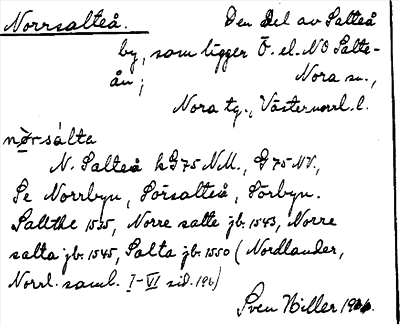 Norrsalteå. Den del av Salteå
by, som ligger Ö. el. NO Salte-
ån; Nora sn.,
Nora tg., Västernorrl. l.
nørsálta
N. Salteå kG75 N.M., G75 NV.,
Se Norrbyn, Sörsalteå, Sörbyn.
Sallthe 1535, Norre salte jb. 1543, Norre
salta jb. 1545, Salta jb. 1550 (Nordlander,
Norrl. saml. I-VI sid. 196)
Sven Hiller